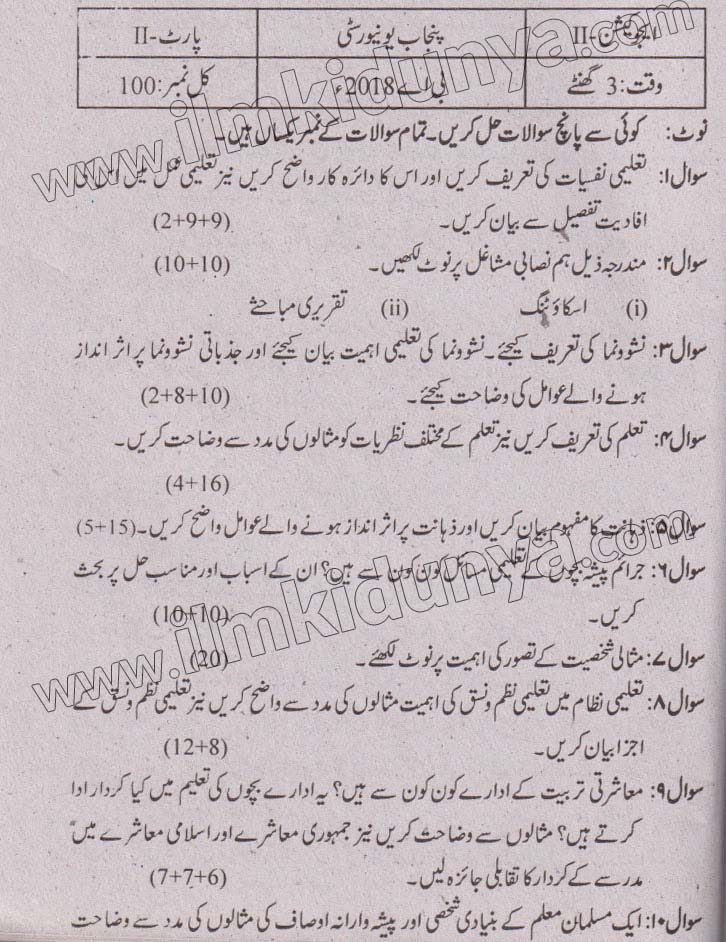 ایجوکیشن-II پنجاب یونیورسٹی پارٹ-II
وقت: 3 گھنٹے بی اے 2018ء کل نمبر: 100
نوٹ: کوئی سے پانچ سوالات حل کریں۔ تمام سوالات کے نمبر یکساں ہیں۔
سوال۱: تعلیمی نفسیات کی تعریف کریں اور اس کا دائرہ کار واضح کریں نیز تعلیمی عمل میں اس کی
افادیت تفصیل سے بیان کریں۔ (2+9+9)
سوال۲: مندرجہ ذیل ہم نصابی مشاغل پر نوٹ لکھیں۔ (10+10)
(i) اسکاؤٹنگ (ii) تقریری مباحثے
سوال۳: نشوونما کی تعریف کیجئے۔ نشوونما کی تعلیمی اہمیت بیان کیجئے اور جذباتی نشوونما پر اثر انداز
ہونے والے عوامل کی وضاحت کیجئے۔ (2+8+10)
سوال۴: تعلم کی تعریف کریں نیز تعلم کے مختلف نظریات کو مثالوں کی مدد سے وضاحت کریں۔
(4+16)
سوال۵: ذہانت کا مفہوم بیان کریں اور ذہانت پر اثر انداز ہونے والے عوامل واضح کریں۔ (5+15)
سوال۶: جرائم پیشہ بچوں کے تعلیمی مسائل کون کون سے ہیں؟ ان کے اسباب اور مناسب حل پر بحث
کریں۔ (10+10)
سوال۷: مثالی شخصیت کے تصور کی اہمیت پر نوٹ لکھئے۔ (20)
سوال۸: تعلیمی نظام میں تعلیمی نظم ونسق کی اہمیت مثالوں کی مدد سے واضح کریں نیز تعلیمی نظم ونسق کے
اجزا بیان کریں۔ (12+8)
سوال۹: معاشرتی تربیت کے ادارے کون کون سے ہیں؟ یہ ادارے بچوں کی تعلیم میں کیا کردار ادا
کرتے ہیں؟ مثالوں سے وضاحت کریں نیز جمہوری معاشرے اور اسلامی معاشرے میں
مدرسے کے کردار کا تقابلی جائزہ لیں۔ (7+7+6)
سوال۱۰: ایک مسلمان معلم کے بنیادی شخصی اور پیشہ وارانہ اوصاف کی مثالوں کی مدد سے وضاحت
www.ilmkidunya.com
www.ilmkidunya.com